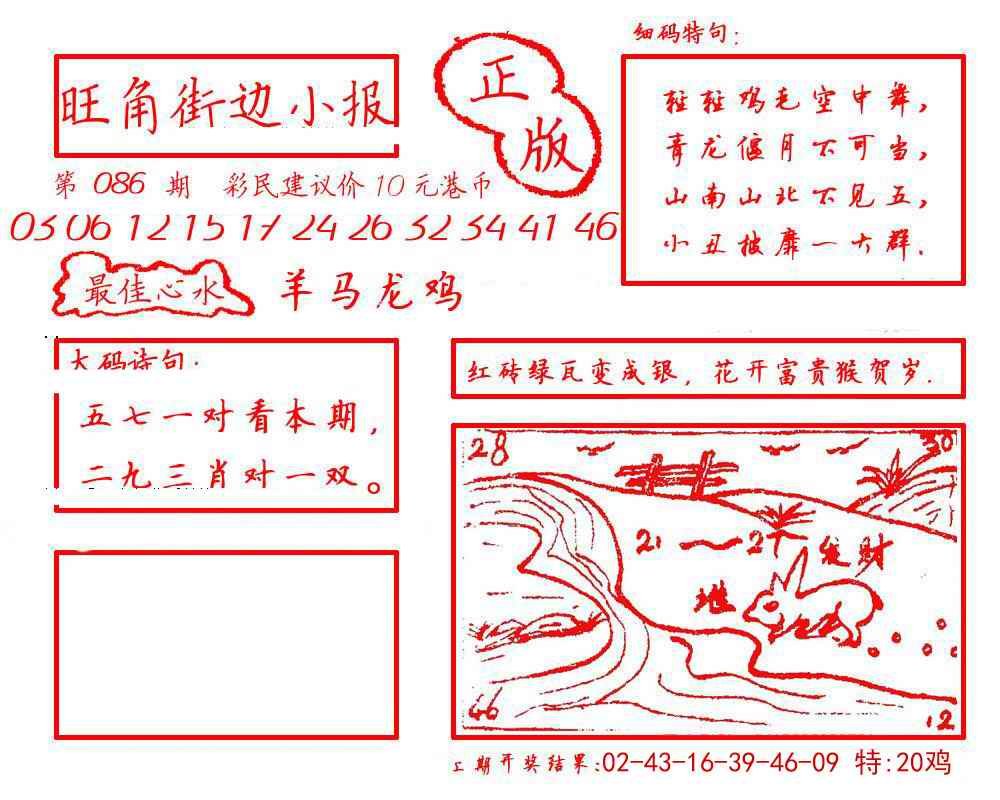 细码特句:
旺角街边小报
正版
柱柱鸡毛空中舞,
青龙偃月不可当,
山南山北不见五,
小丑披靡一大群.
第 086 期 彩民建议价10元港币
03 06 12 15 17 24 26 32 34 41 46
最佳心水 羊马龙鸡
大码诗句.
五七一对看本期,
二九三肖对一双。
红砖绿瓦变成银,花开富贵猴贺岁.
28
30
21 — 2
发财
46
12
上期开奖结果:02-43-16-39-46-09 特:20鸡